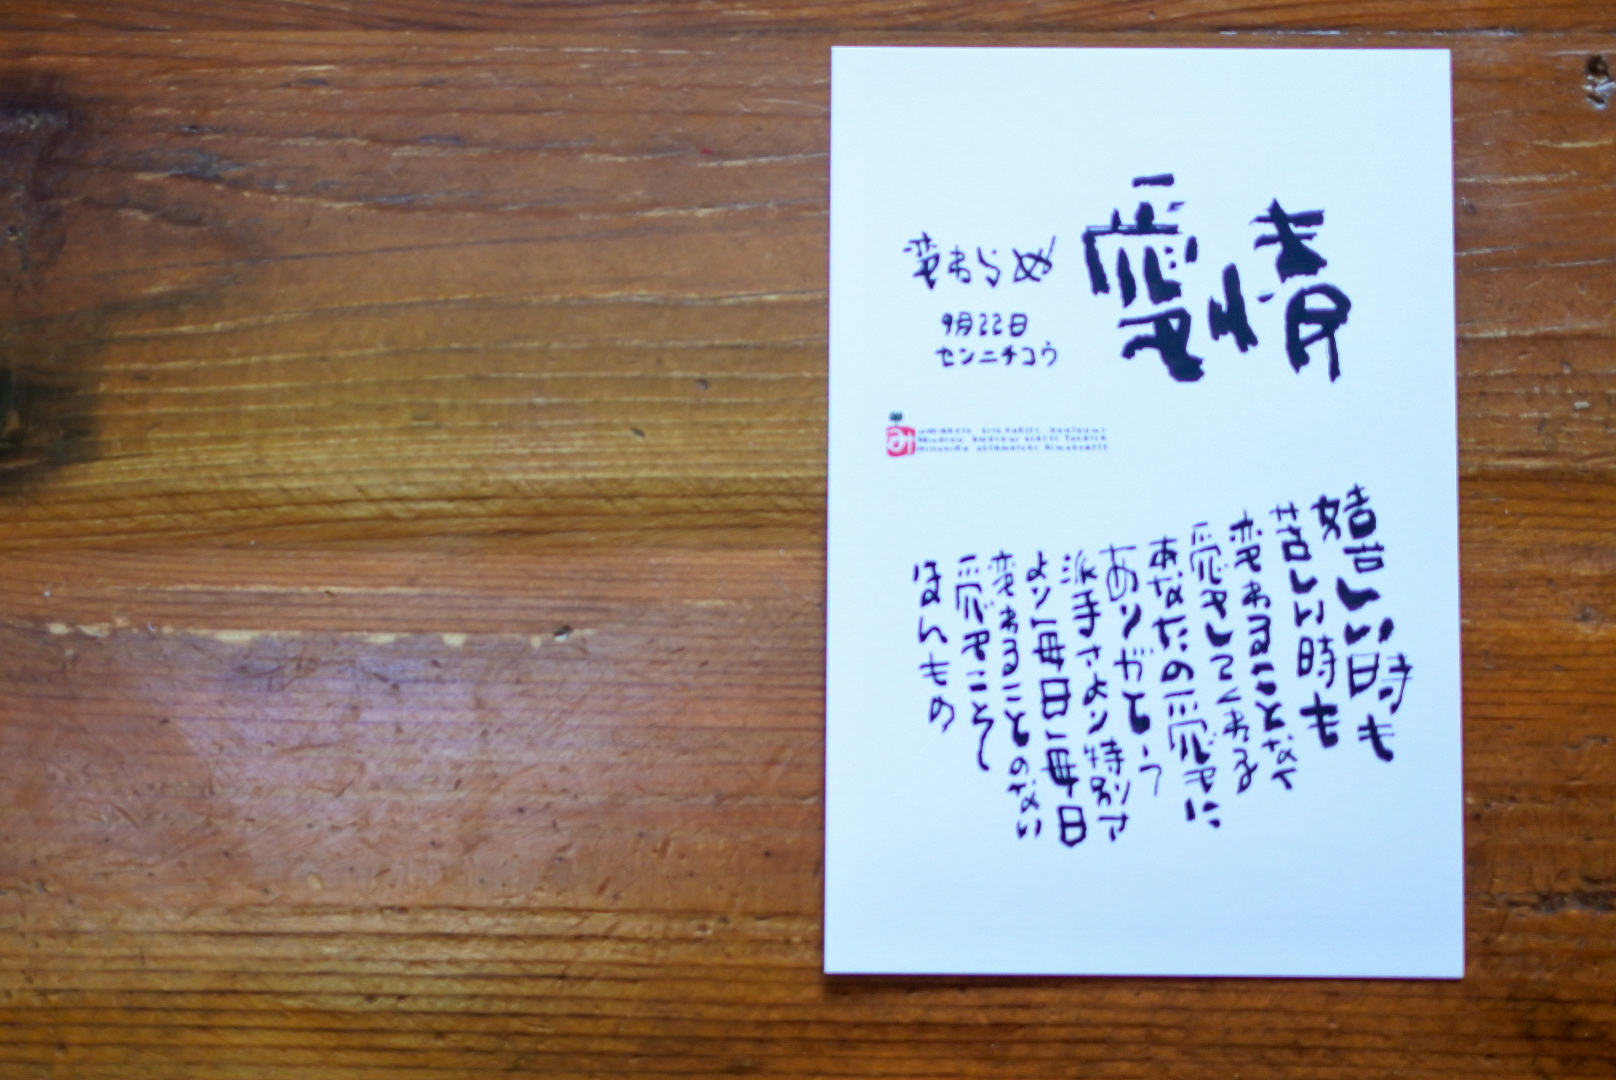 変わらぬ
愛情
9月22日
センニチコウ
み
嬉しい時も
苦しい時も
変わることなく
愛してくれる
あなたの愛に
ありがとう
派手さより特別さ
より毎日毎日
変わることのない
愛こそ
ほんもの